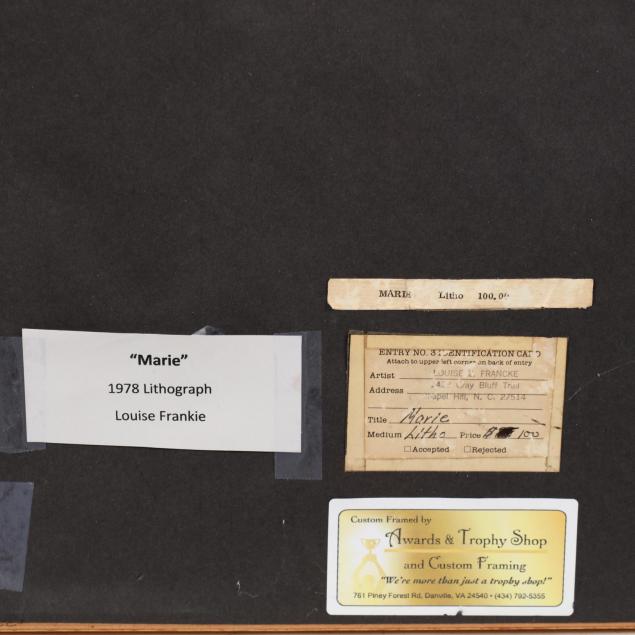 MARIE Litho 100.00
"Marie"
1978 Lithograph
Louise Frankie
ENTRY NO. 3 IDENTIFICATION CARD
Attach to upper left corner on back of entry
Artist LOUISE L. FRANCKE
Address Gray Bluff Trail
Chapel Hill, N. C. 27514
Title Marie
Medium Litho Price $ 100
☐Accepted ☐Rejected
Custom Framed by
Awards & Trophy Shop
and Custom Framing
"We're more than just a trophy shop!"
761 Piney Forest Rd, Danville, VA 24540 • (434) 792-5355